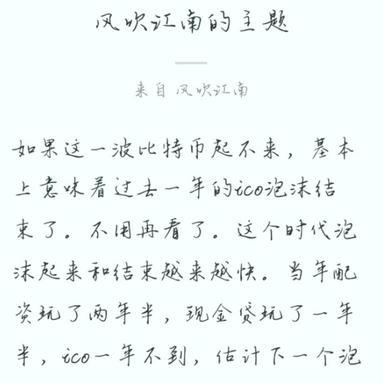 风吹江南的主题
来自 风吹江南
如果这一波比特币起不来，基本
上意味着过去一年的ico泡沫结
束了。不用再看了。这个时代泡
沫起来和结束越来越快。当年配
资玩了两年半，现金贷玩了一年
半，ico一年不到，估计下一个泡